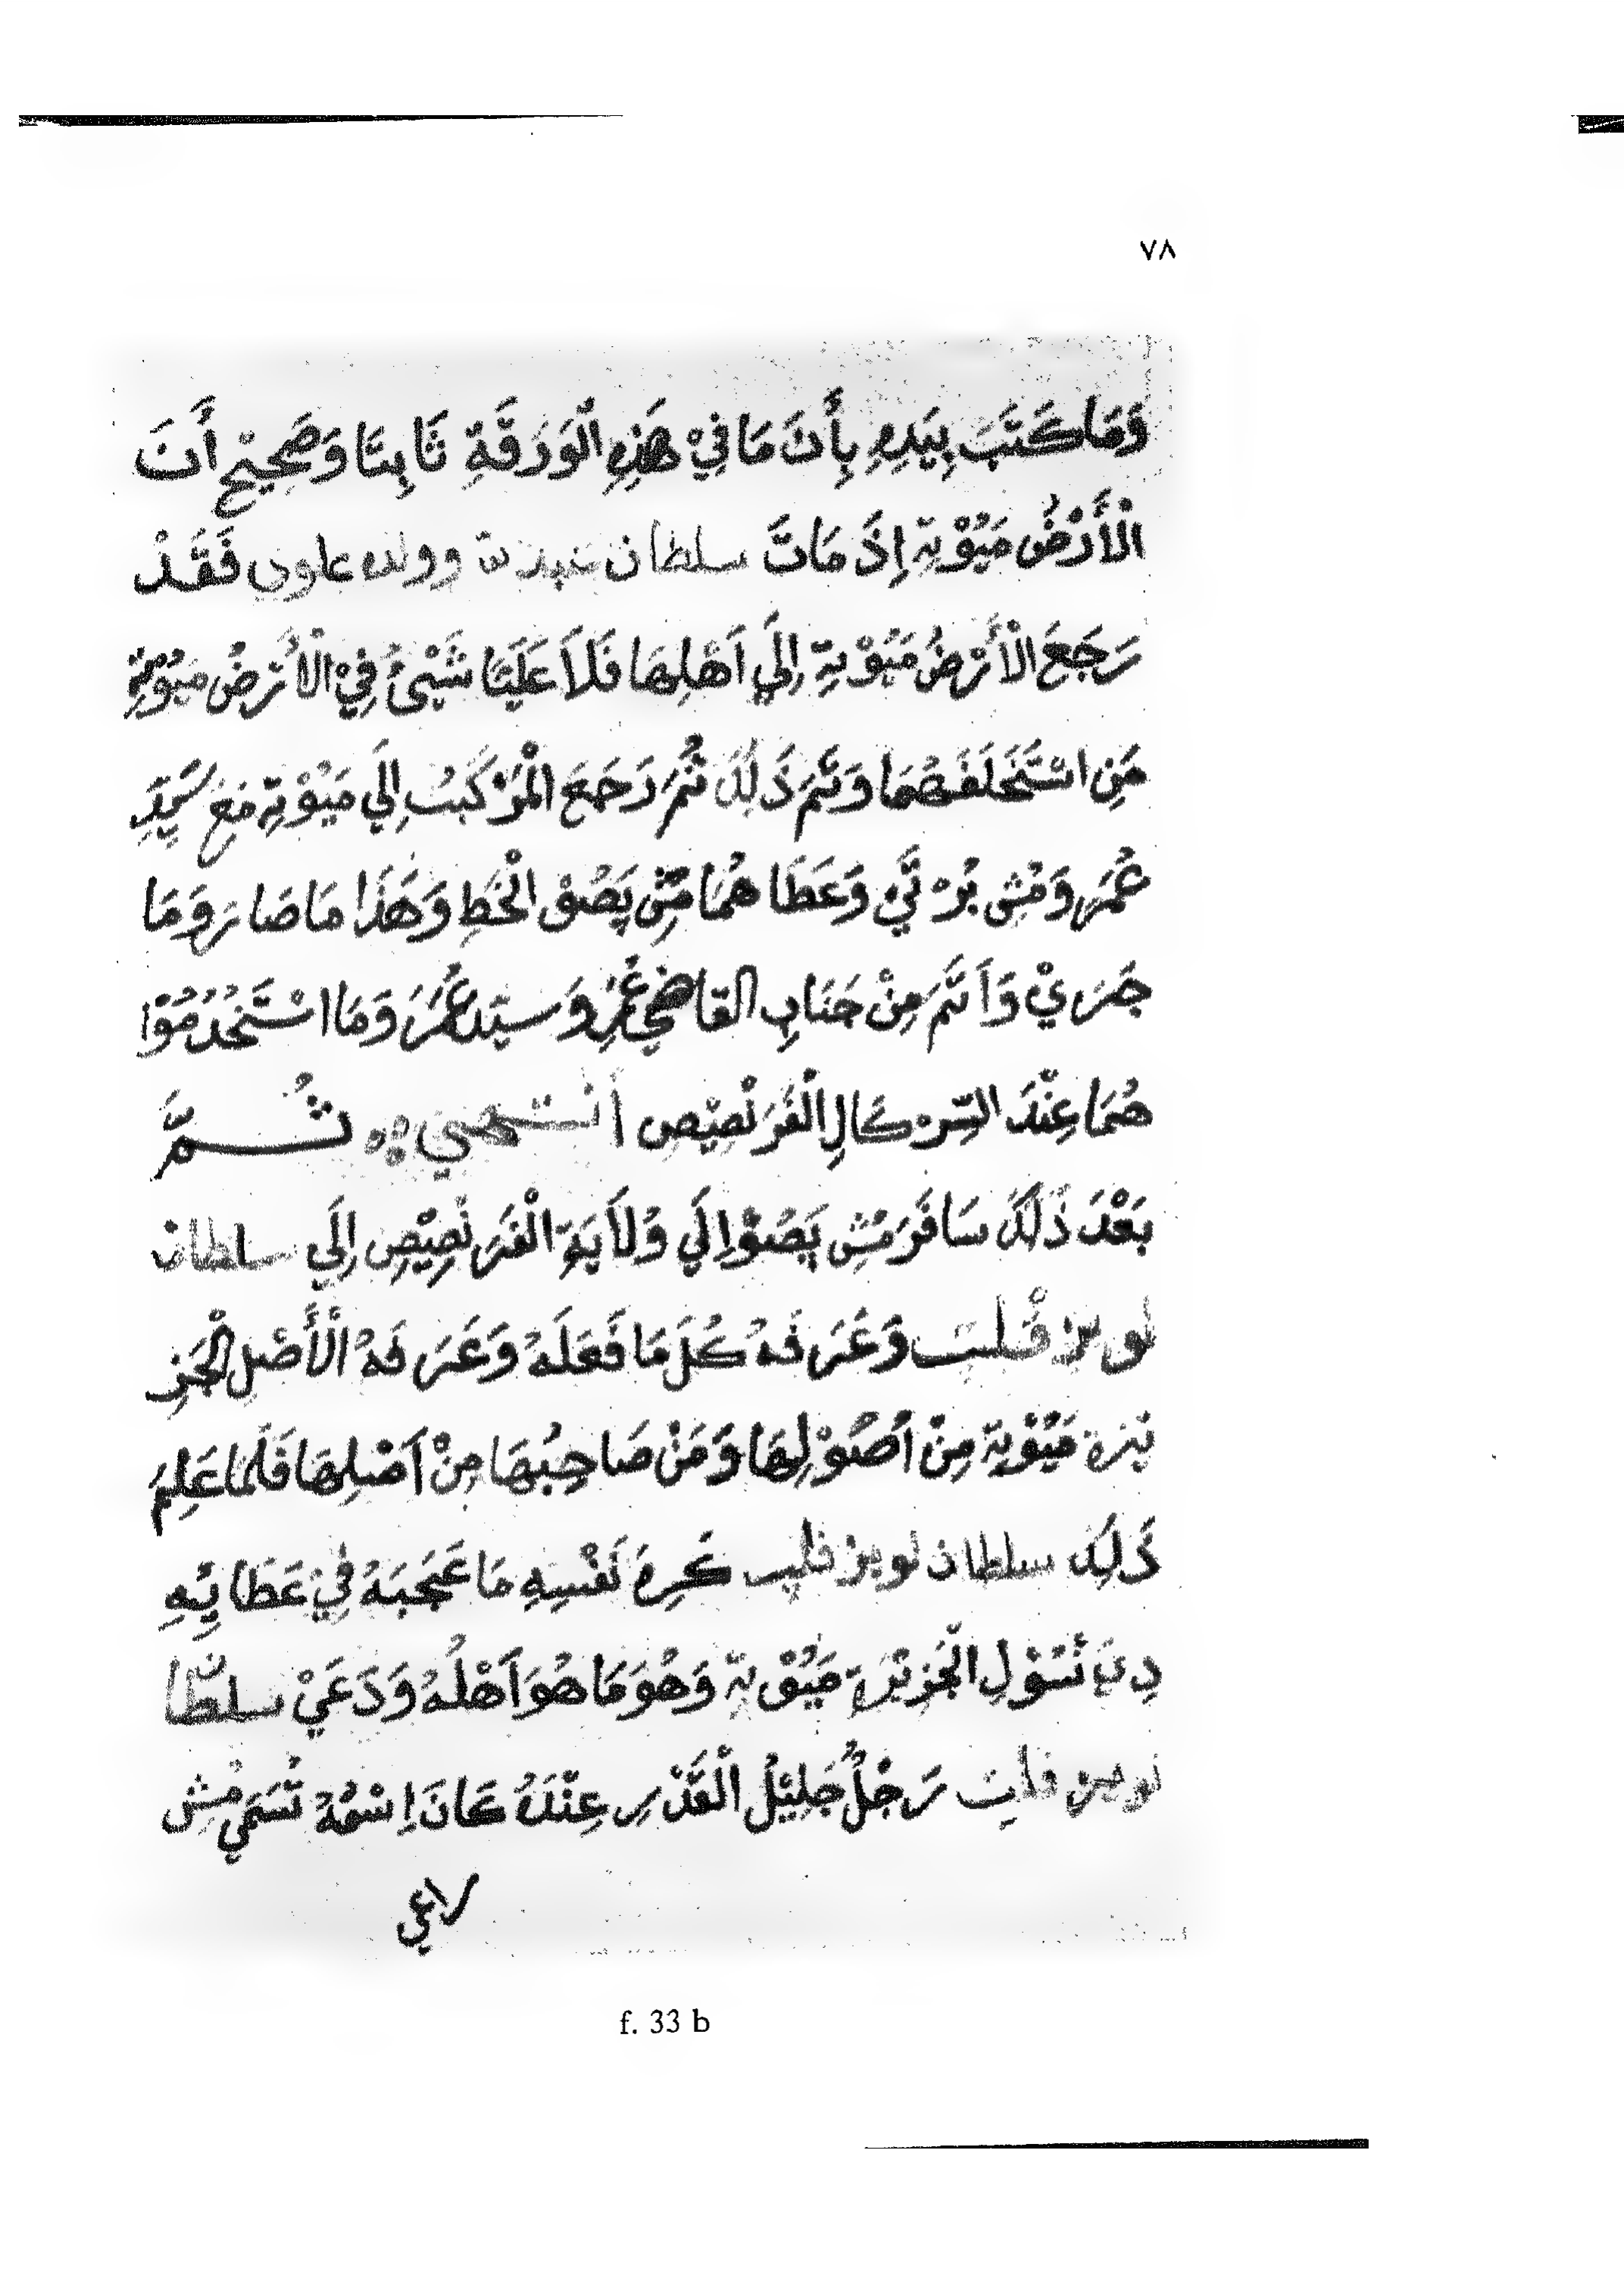 ٧٨
وَمَا كَتَبَ بِيَدِهِ بِأَنَ مَا فِيْ هَذِهِ الْوَرَقَةِ ثَابِتًا وَصَحِيْحٍ أَنَ
الْأَرْضُ مَيُوْتِةِ إِذَ مَاتَ سلطان ووالده علوي فَقَدْ
رَجَعَ الْأَرْضُ مَيُوْتِةِ إِلَي اَهْلِهَا فَلَا عَلَيْنَا شَيْئُ فِيْ الْأَرْضُ مَيُوْتِةِ
مَنِ اسْتَخْلَفَهُمَا وَتَمَ ذَلِكَ ثُمَ رَجَعَ الْمَرْكَبُ اِلَي مَيُوْتِةِ مَعَ سَيِّدِ
عُمَرَ وَمُشِ وَعَطَا هُمَا مُشِ پَصُوْ الْخَطِ وَهَذَا مَا صَارَ وَمَا
جَرَيْ وَاَ تَمَ مِنْ جَنَابِ القاضي عُمَرِ وَسيد عُمَرَ وَمَا اسْتَخْدُمُوْا
هُمَا عِنْدَ السِّرْكَالِ الْفَرَنْصِيْصِ أنتهي ثُمَّ
بَعْدَ ذَلِكَ سَافَرَ مُشِ پَصُوْ اِلَي وُلَايَةِ الْفَرَنْصِيْصِ اِلَي سلطان
لويز فُلِيب وَعَرَفَهُ كُلَ مَا فَعَلَهُ وَعَرَفَهُ الْأَصْلِ الْجَزِ
يْرَة مَيُوْتِةِ مِنْ اُصُوْلِهَا وَمَنْ صَاحِبُهَا مِنْ اَصْلِهَا فَلَمَا عَلِمَ
ذَلِكَ سلطان لويز فليب كَرِهَ لَفْسِهِ مَا عَجَبَهُ فِيْ عَطَائِهِ
الْجَزِيْرَةِ مَيُوْتِةِ وَهُوَ مَا هُوَ اَهْلُهُ وَدَعَيْ سلطان
لويز فليب رَجُلُ جَلِيْلُ الْقَدْرِ عِنْدَهُ كَانَ اِسْمُهُ تُسَمَي مُشِ
f. 33 b